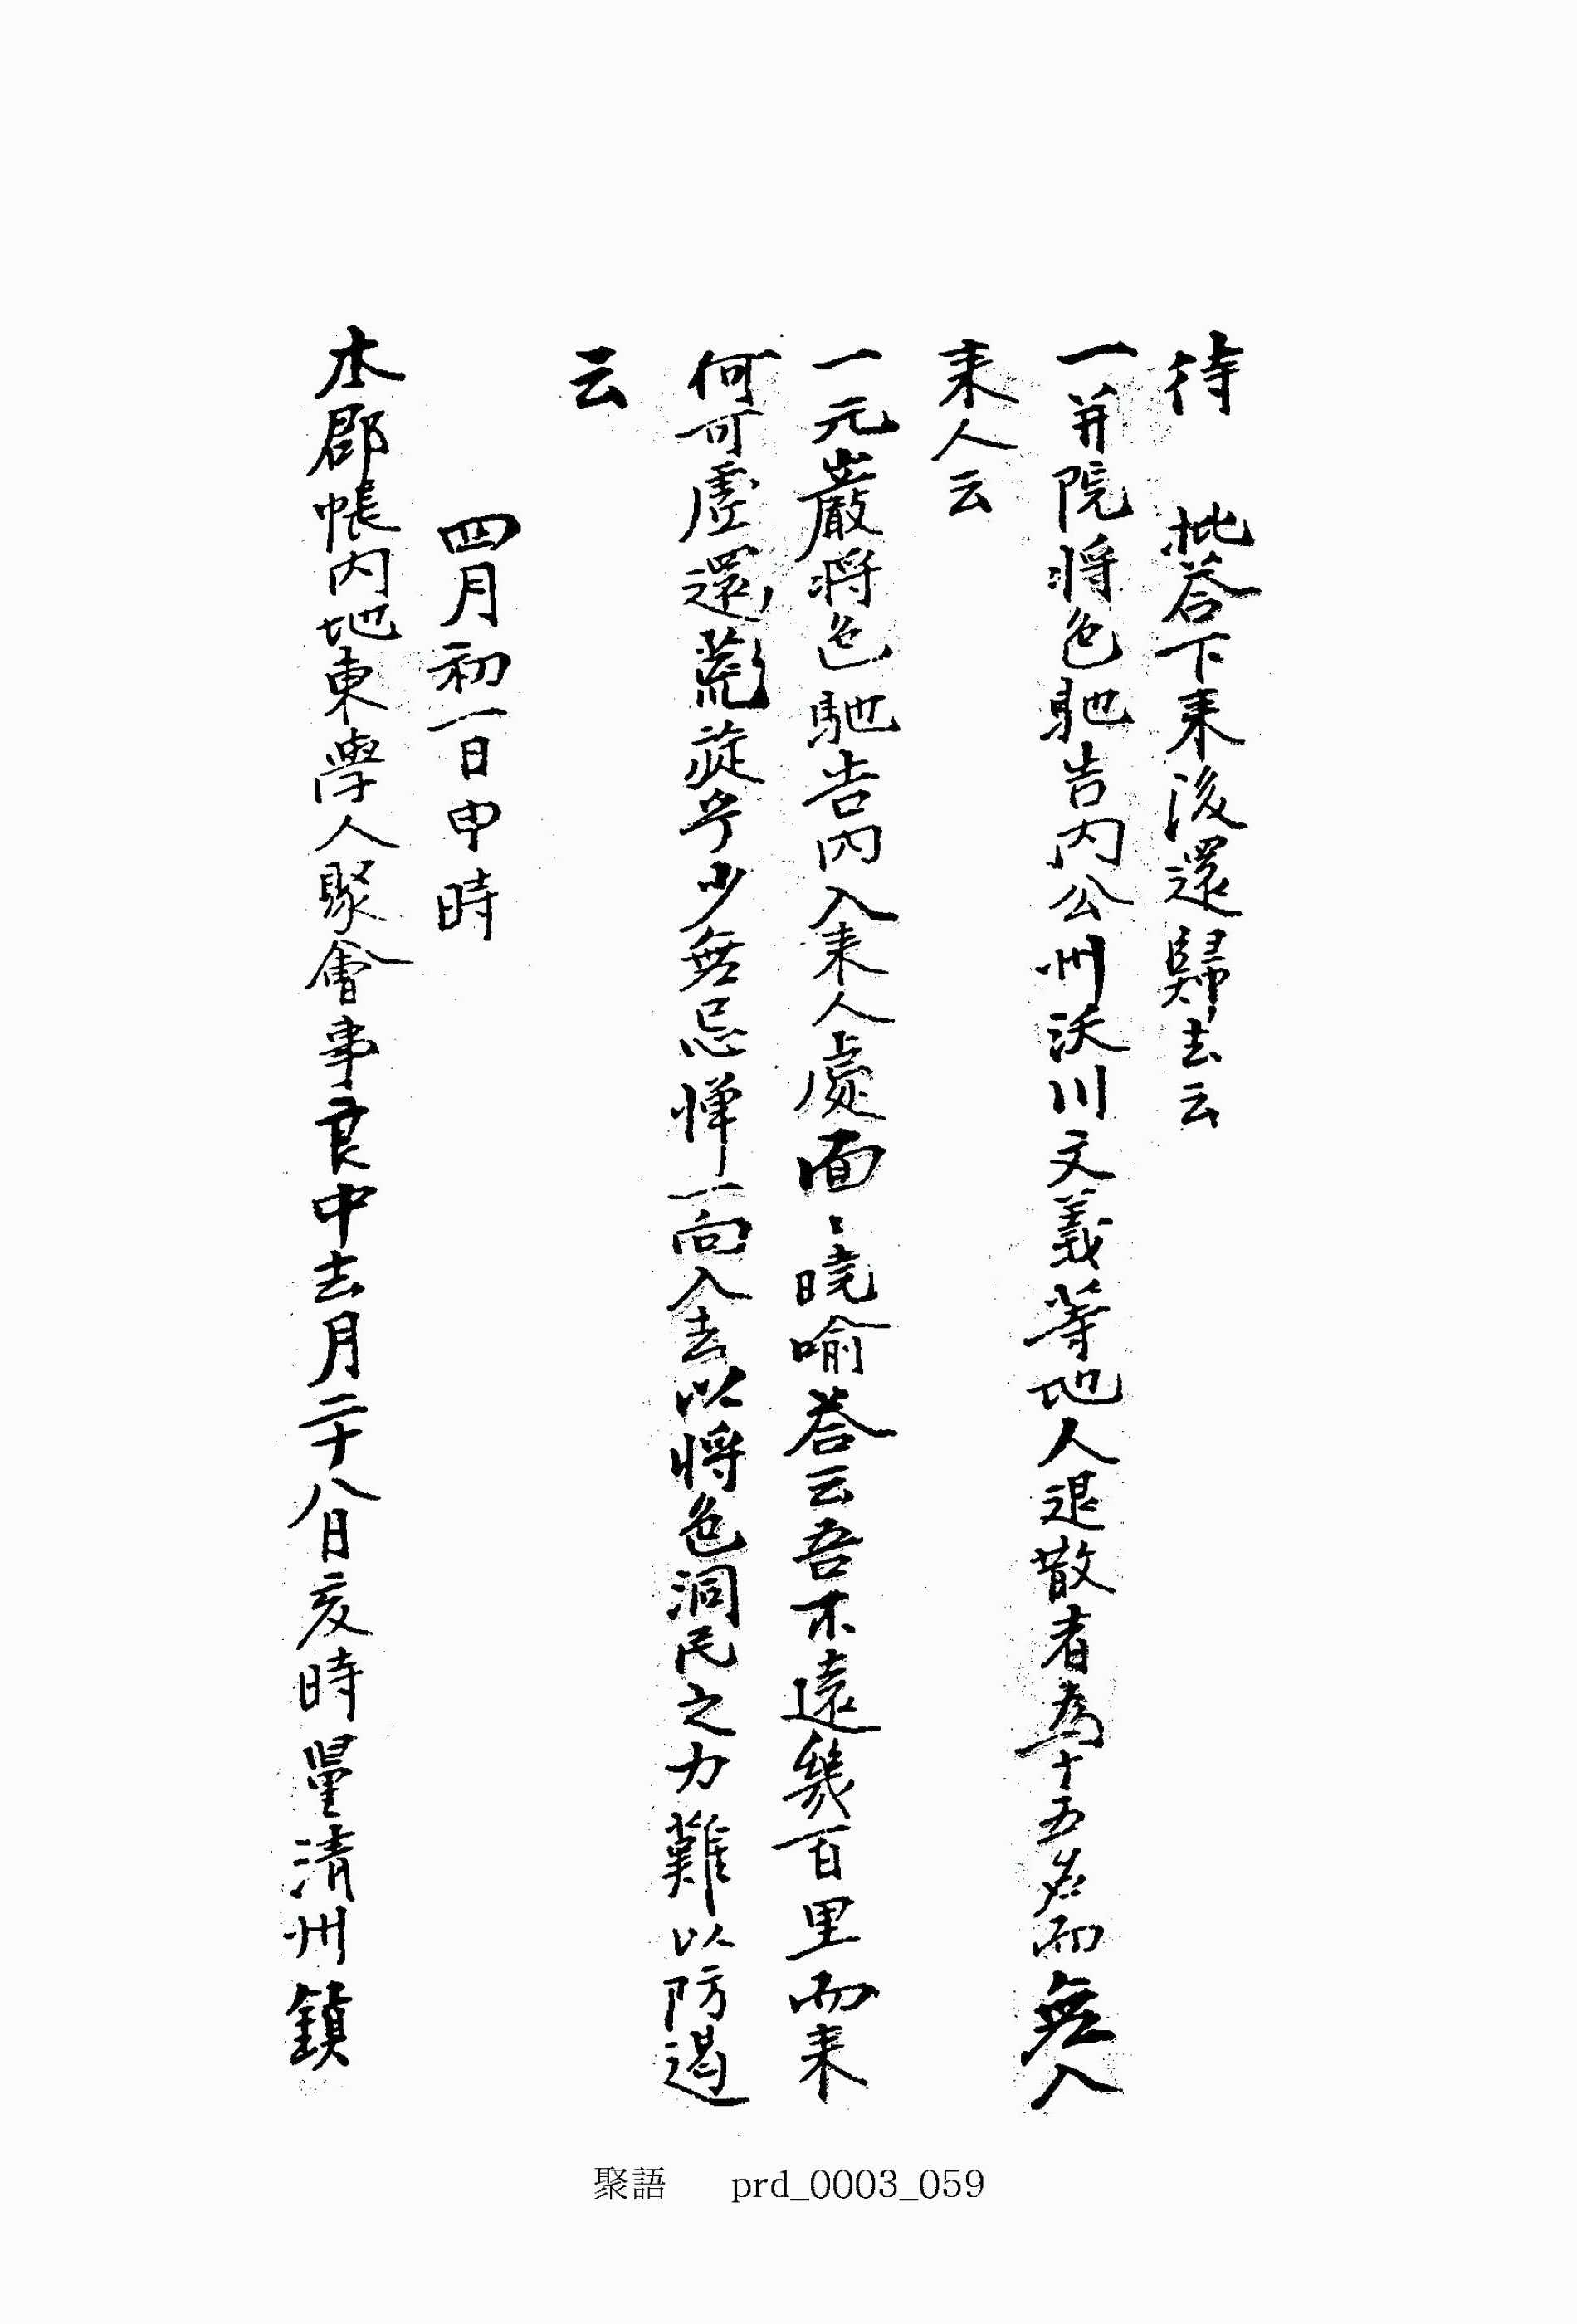 待 批荅下来後還歸去云
一并院將色馳告內公州沃川文義等地人退散者為十五名而無入
来人云
一元巖將色馳告內入来人處面〻曉喻荅云吾不遠幾百里而来
何可虛還荒旋乎少無忌憚一向入去以將色洞民之力難以防遏
云
四月初一日申時
本郡帳內地東學人聚會事良中去月二十八日亥時量清州鎮
聚語 prd_0003_059